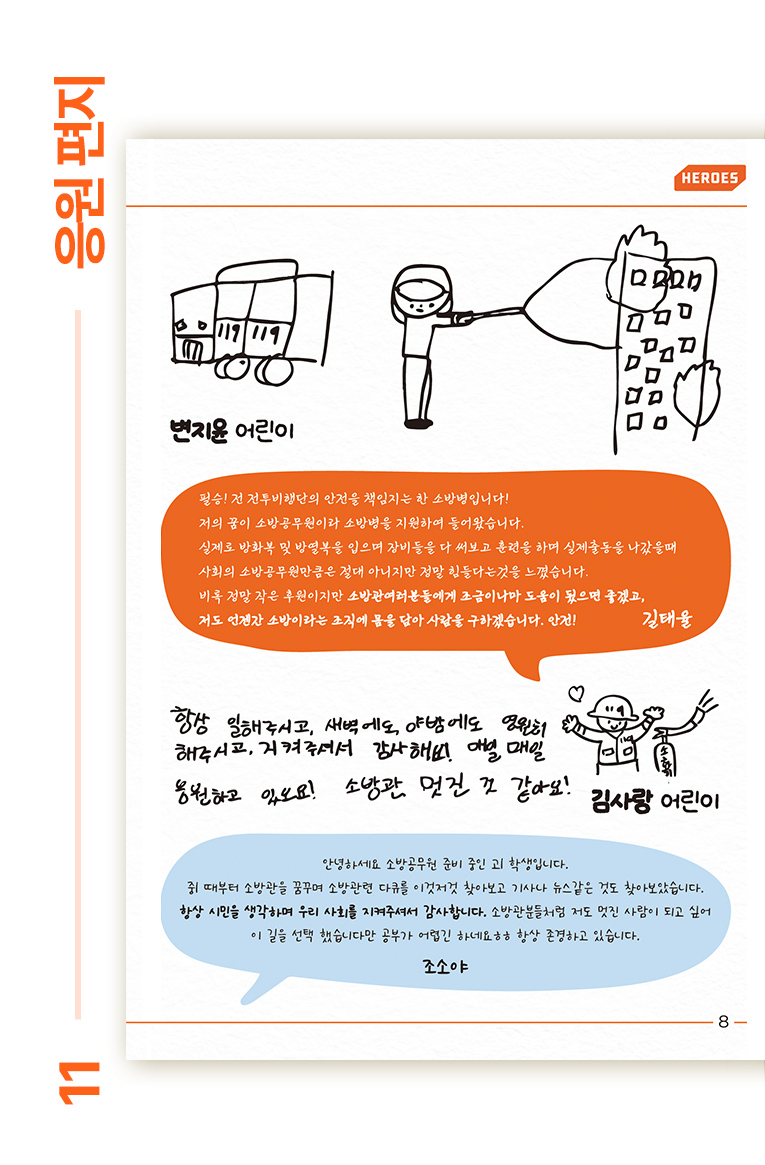 응원 편지
11
HEROES
119 119
변지윤 어린이
필승! 전 전투비행단의 안전을 책임지는 한 소방병입니다!
저의 꿈이 소방공무원이라 소방병을 지원하여 들어왔습니다.
실제로 방화복 및 방열복을 입으며 장비들을 다 써보고 훈련을 하며 실제출동을 나갔을때
사회의 소방공무원만큼은 절대 아니지만 정말 힘들다는것을 느꼈습니다.
비록 정말 작은 후원이지만 소방관여러분들에게 조금이나마 도움이 됐으면 좋겠고,
저도 언젠간 소방이라는 조직에 몸을 담아 사람을 구하겠습니다. 안전!
길태율
항상 일해주시고, 새벽에도, 야밤에도 영원히
해주시고, 지켜주셔서 감사해요! 매일 매일
응원하고 있어요! 소방관, 멋진 것 같아요!
119
소화기
김사랑 어린이
안녕하세요 소방공무원 준비 중인 고1 학생입니다.
중1 때부터 소방관을 꿈꾸며 소방관련 다큐를 이것저것 찾아보고 기사나 뉴스같은 것도 찾아보았습니다.
항상 시민을 생각하며 우리 사회를 지켜주셔서 감사합니다. 소방관분들처럼 저도 멋진 사람이 되고 싶어
이 길을 선택 했습니다만 공부가 어렵긴 하네요ㅎㅎ 항상 존경하고 있습니다.
조소야
8